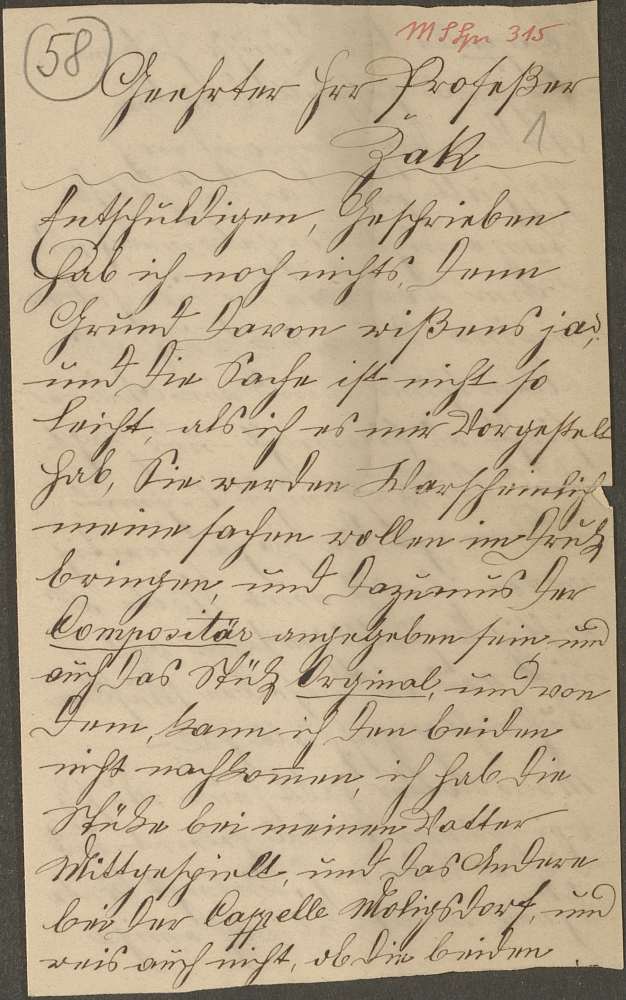 58
MSSpr 315
Geehrter Hrr Profeßer
Žak
1
Entschuldigen, Geschrieben
hab ich noch nichts, Denn
Grund Davon wißens ja,
und die Sache ist nicht so
leicht, als ich es mir Vorgestelt
hab, Sie werden Warscheinlich
meine sachen wollen in Druk
bringen, und Dazu mus Der
Compositär angegeben sein, und
auch Das Stük Orginal, und von
Dem, kann ich Den beiden
nicht nachkommen, ich hab die
Stüke bei meinen Vatter
Mittgespielt, und Das Andere
bei Der Cappelle Moligsdorf, und
weis auch nicht, ob die beiden